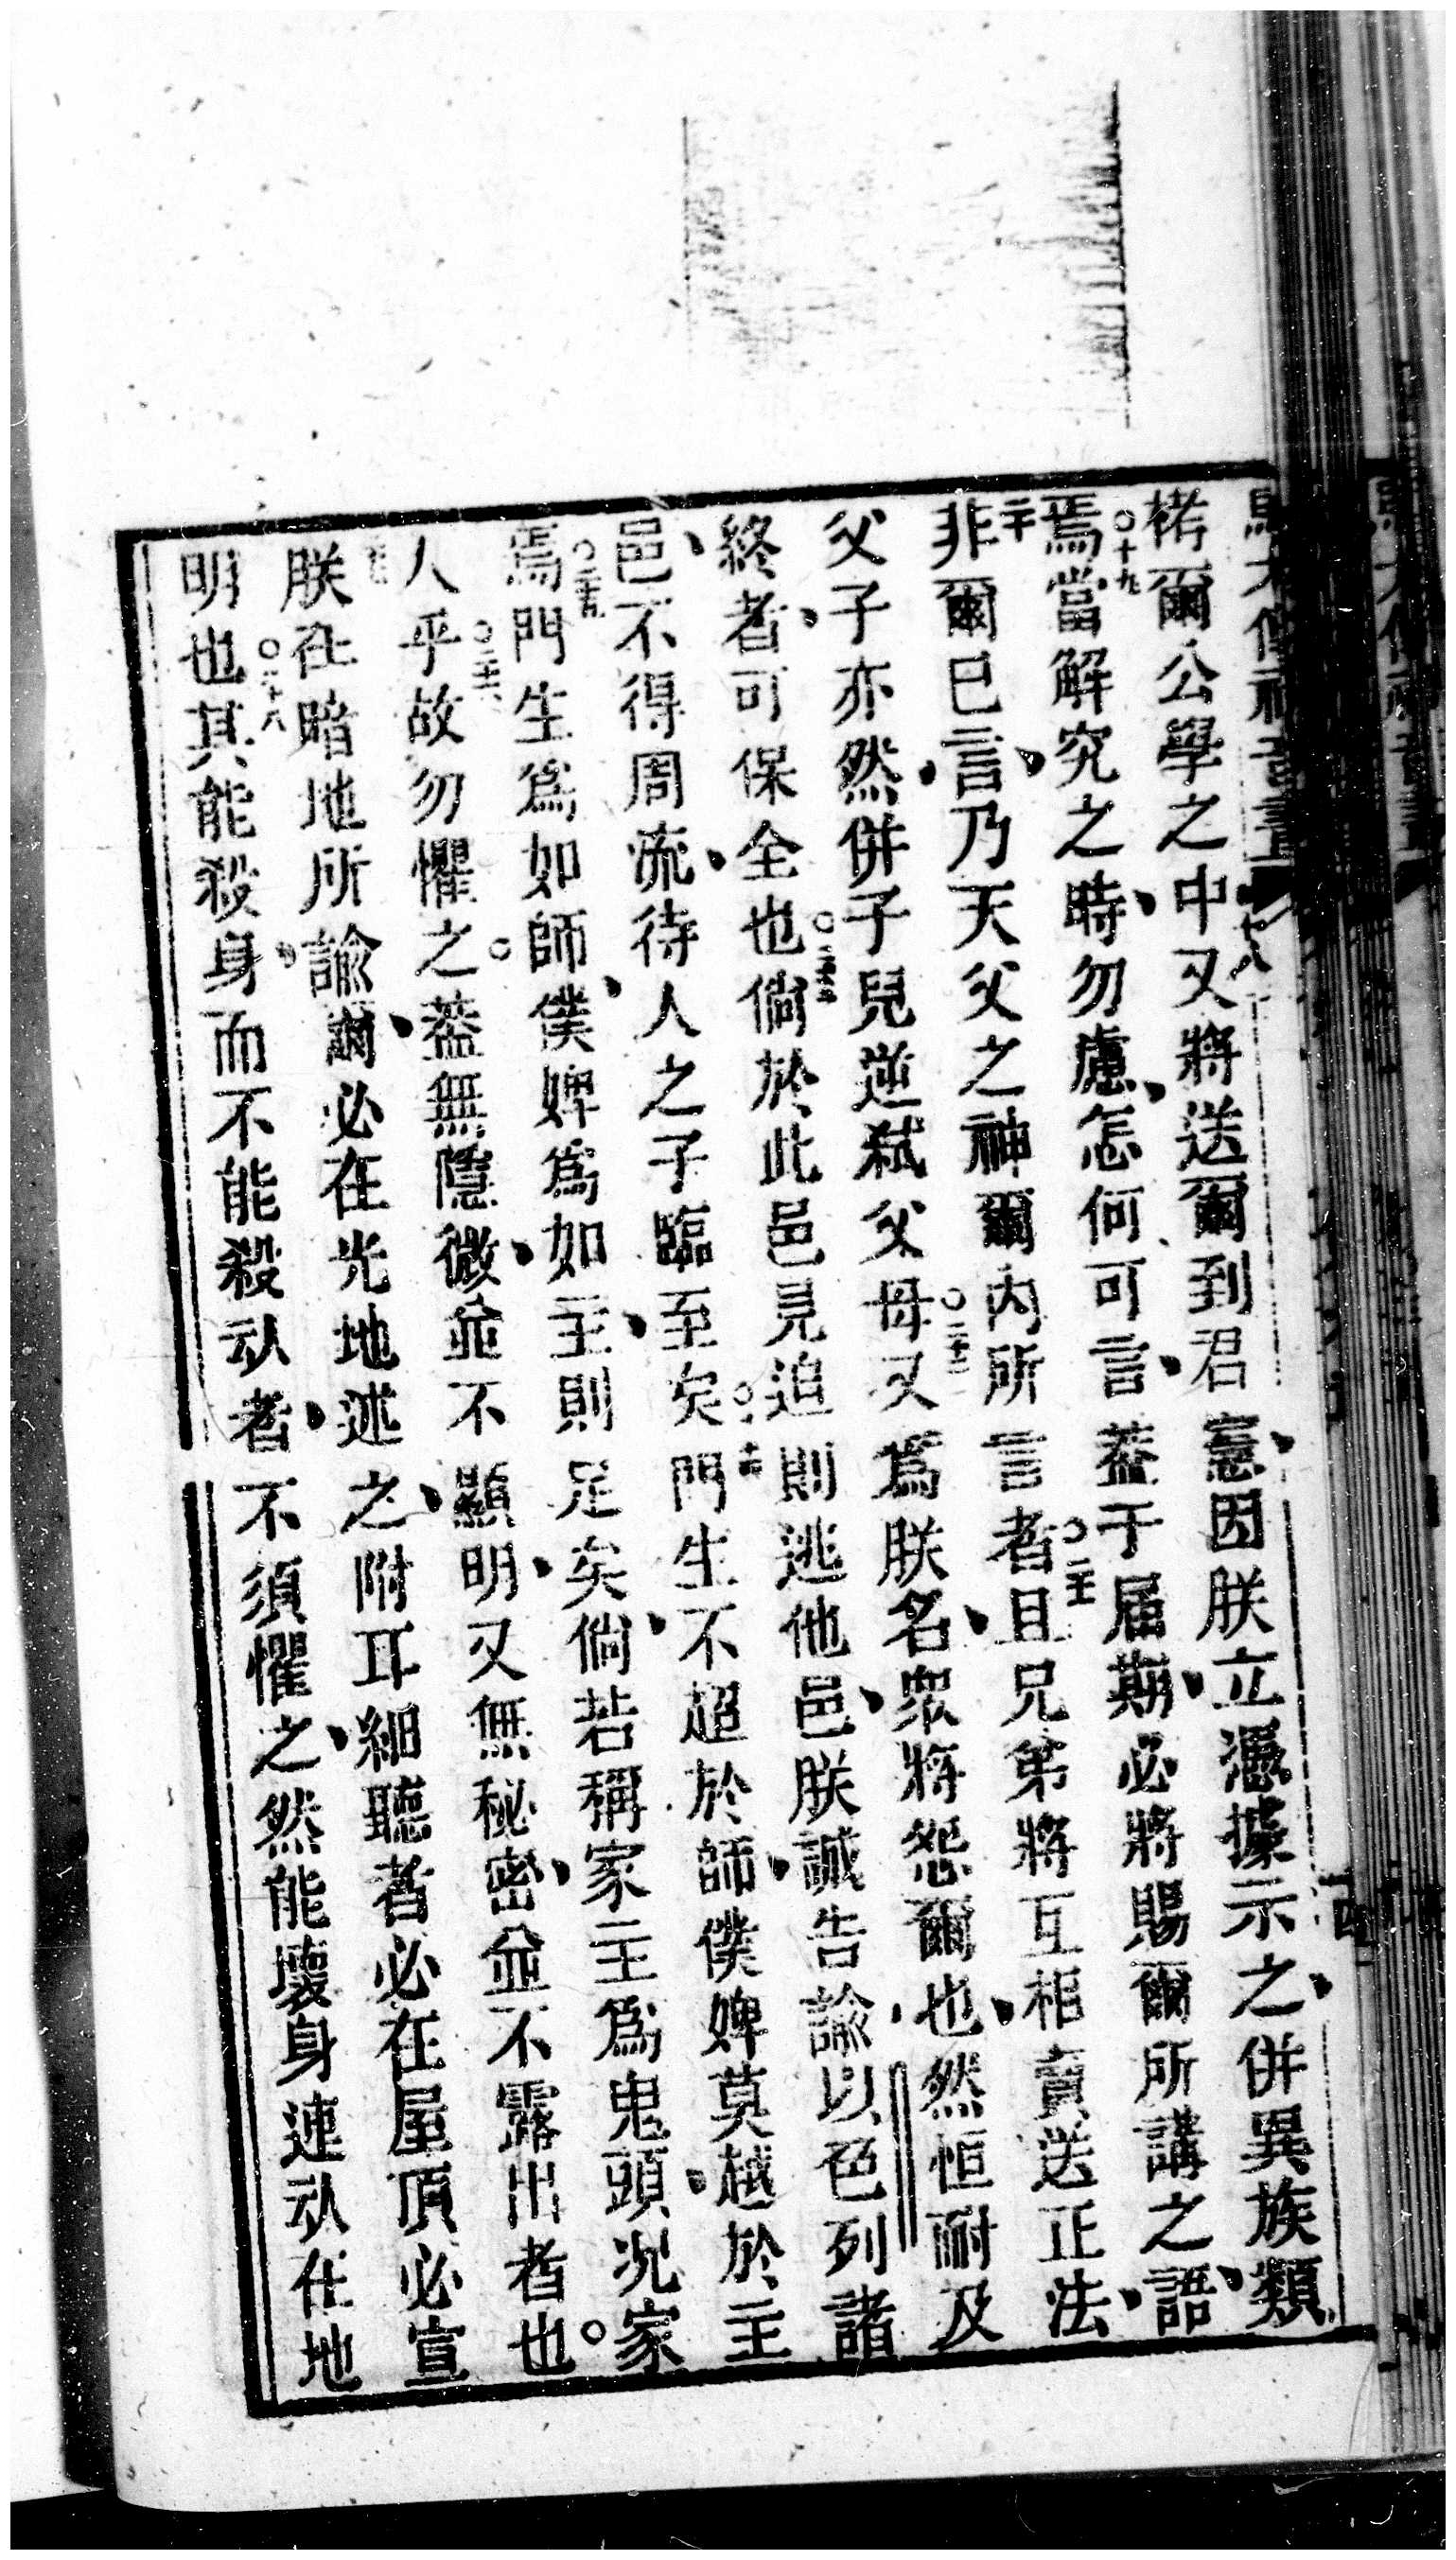 栳爾公學之中又將送爾到君憲、因朕立憑據示之、併異族類
焉○十九當解究之時、勿慮、怎何可言、葢于屆期、必將賜爾所講之語、
○二十非爾巳言、乃天父之神爾內所言者○二十一且兄第將互相賣送正法、
父子亦然、併子兒逆弑父母○二十二又爲朕名、衆將怨爾也、然恒耐及
終者、可保全也○二十三倘於此邑見追則逃他邑、朕誠告諭、以色列諸
邑、不得周流、待人之子臨至矣○二十四門生不超於師、僕婢莫越於主
焉○二十五門生爲如師、僕婢爲如主、則足矣、倘若稱家主爲鬼頭、况家
人乎○二十六故勿懼之○葢無隱微、並不顯明、又無秘密、並不露出者也○
朕在暗地所諭爾、必在光地述之、附耳細聽者必在屋頂必宣
明也○二十八其能殺身、而不能殺㱐者、不須懼之、然能壞身連㱐在地